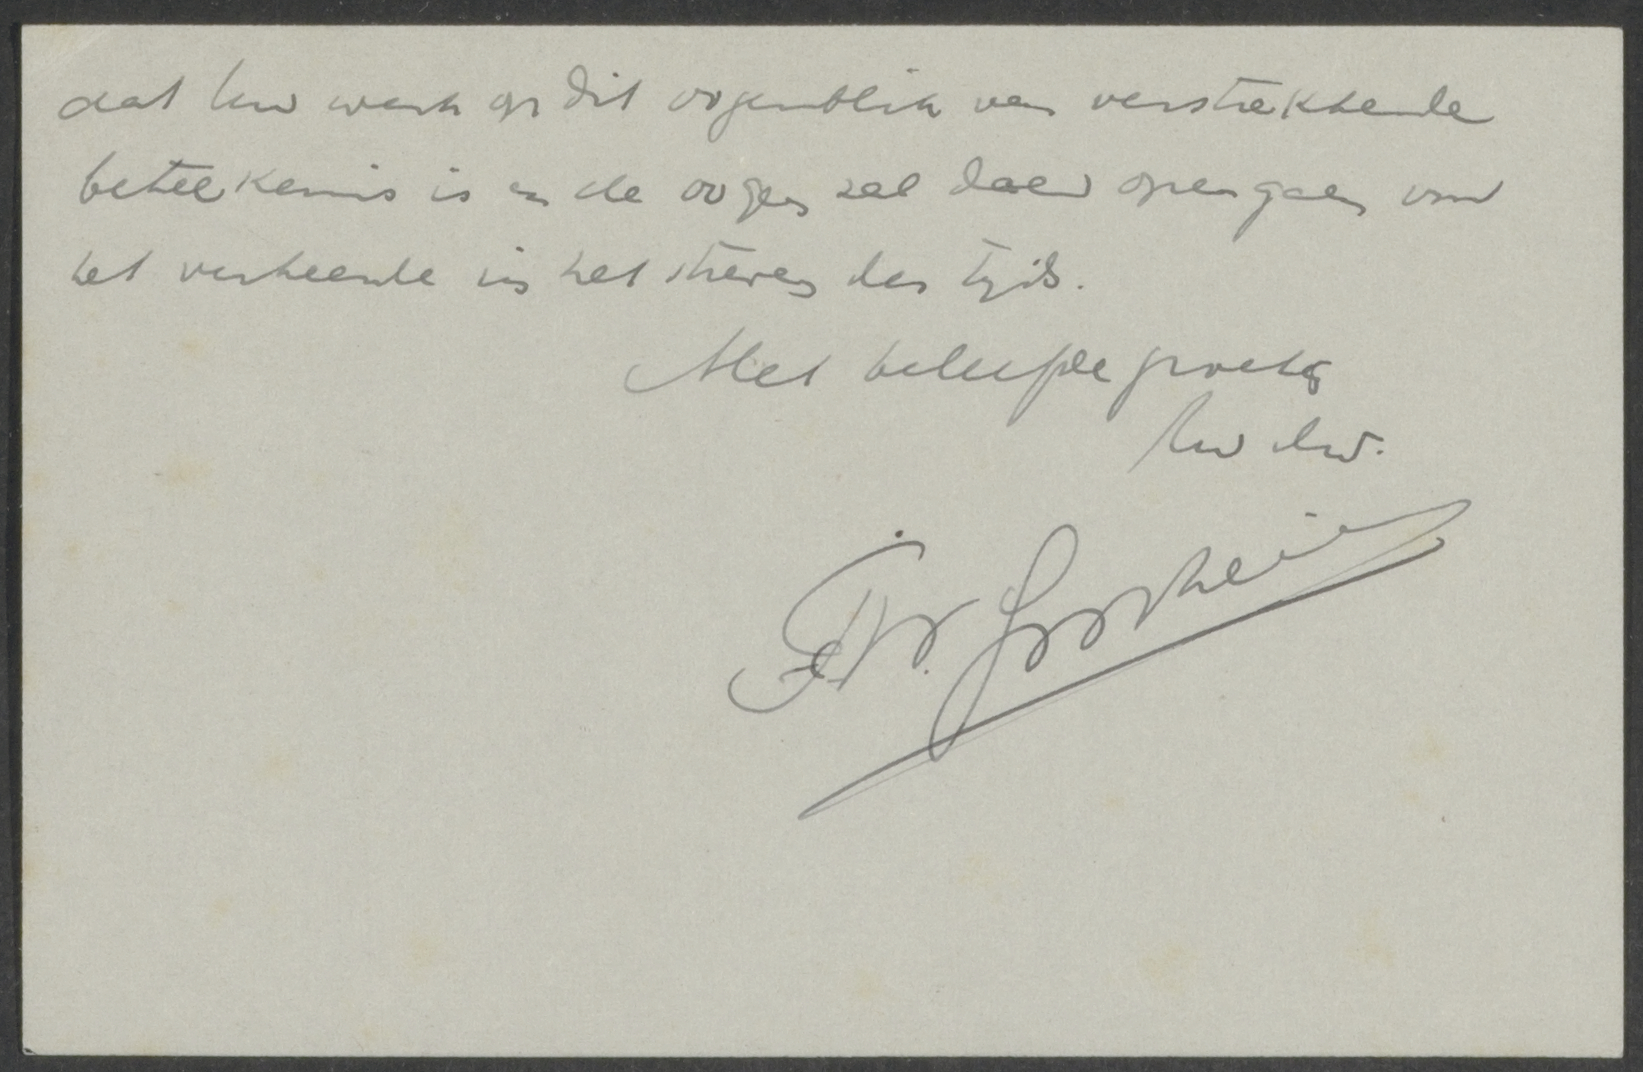 dat Uw werk op dit oogenblik van verstrekkende
beteekenis is en de oogen zal doen open gaan voor
het verkeerde in het streven des tijds.
Met beleefde groeten
Uw dw.